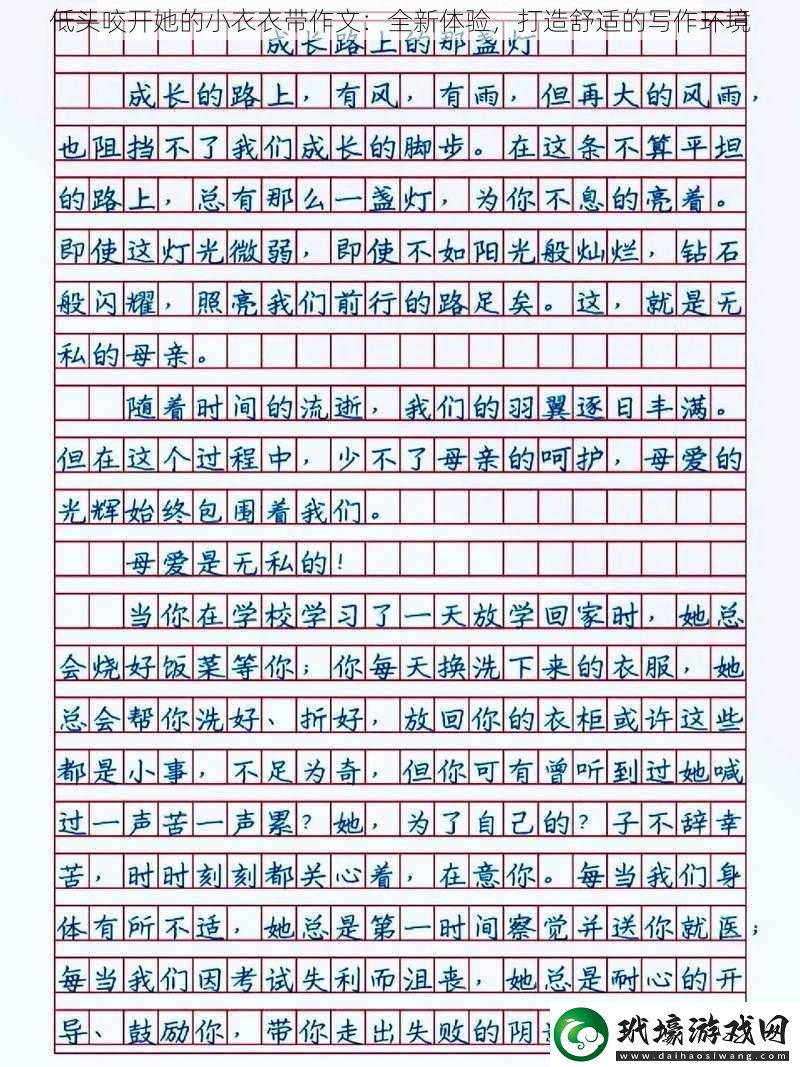 低头咬开她的小衣衣带作文：全新体验，打造舒适的写作环境
成长路上的那盏灯
成长的路上，有风，有雨，但再大的风雨，
也阻挡不了我们成长的脚步。在这条不算平坦
的路上，总有那么一盏灯，为你不息的亮着。
即使这灯光微弱，即使不如阳光般灿烂，钻石
般闪耀，照亮我们前行的路足矣。这，就是无
私的母亲。
随着时间的流逝，我们的羽翼逐日丰满。
但在这个过程中，少不了母亲的呵护，母爱的
光辉始终包围着我们。
母爱是无私的！
当你在学校学习了一天放学回家时，她总
会烧好饭菜等你；你每天换洗下来的衣服，她
总会帮你洗好、折好，放回你的衣柜或许这些
都是小事，不足为奇，但你可有曾听到过她喊
过一声苦一声累？她，为了自己的？子不辞幸
苦，时时刻刻都关心着，在意你。每当我们身
体有所不适，她总是第一时间察觉并送你就医；
每当我们因考试失利而沮丧，她总是耐心的开
导、鼓励你，带你走出失败的阴
玳壕游戏网
www.daihaosiwang.com